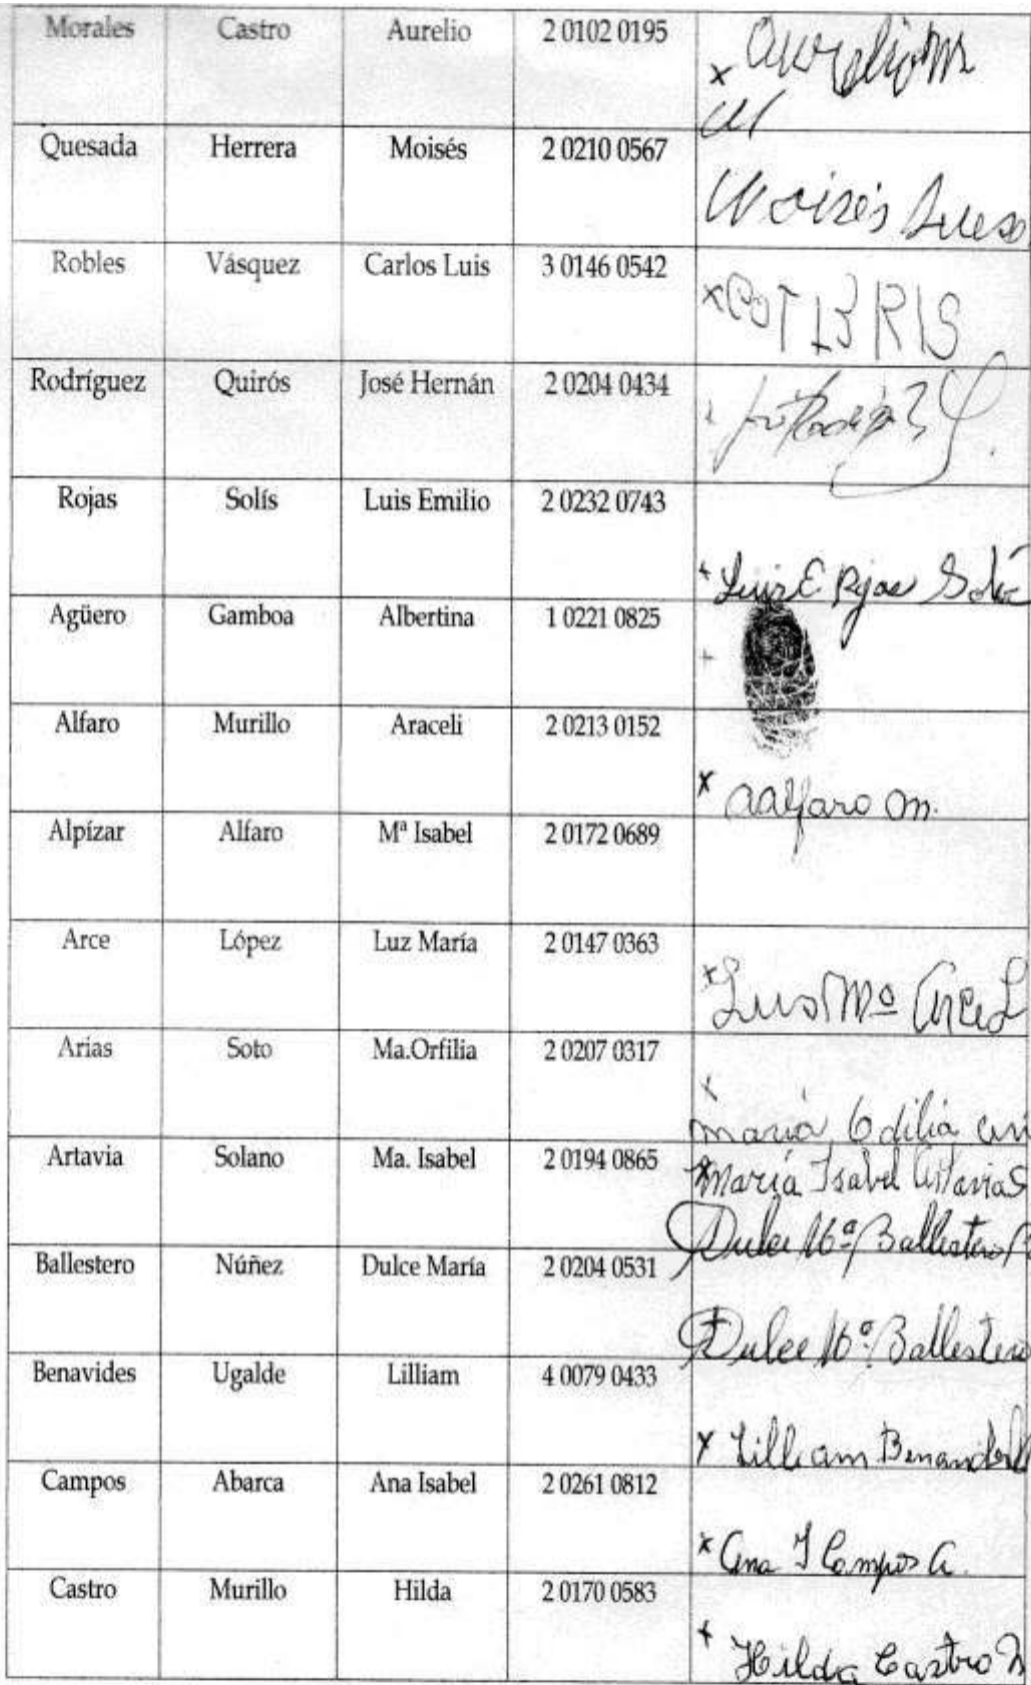 Morales Castro Aurelio 2 0102 0195 x Aurelio M
Quesada Herrera Moisés 2 0210 0567 Moisés
Robles Vásquez Carlos Luis 3 0146 0542 x
Rodríguez Quirós José Hernán 2 0204 0434
Rojas Solís Luis Emilio 2 0232 0743 Luis E Rojas Solís
Agüero Gamboa Albertina 1 0221 0825 +
Alfaro Murillo Araceli 2 0213 0152 x aalfaro m.
Alpízar Alfaro Mª Isabel 2 0172 0689
Arce López Luz María 2 0147 0363 x Luz Mª Arce L
Arias Soto Ma.Orfilia 2 0207 0317 x maría
Artavia Solano Ma. Isabel 2 0194 0865 x María Isabel Artavia S
Dulce Mª Ballestero
Ballestero Núñez Dulce María 2 0204 0531 Dulce Mª Ballestero
Benavides Ugalde Lilliam 4 0079 0433 x Lilliam
Campos Abarca Ana Isabel 2 0261 0812 x Ana I Campos A.
Castro Murillo Hilda 2 0170 0583 + Hilda Castro M